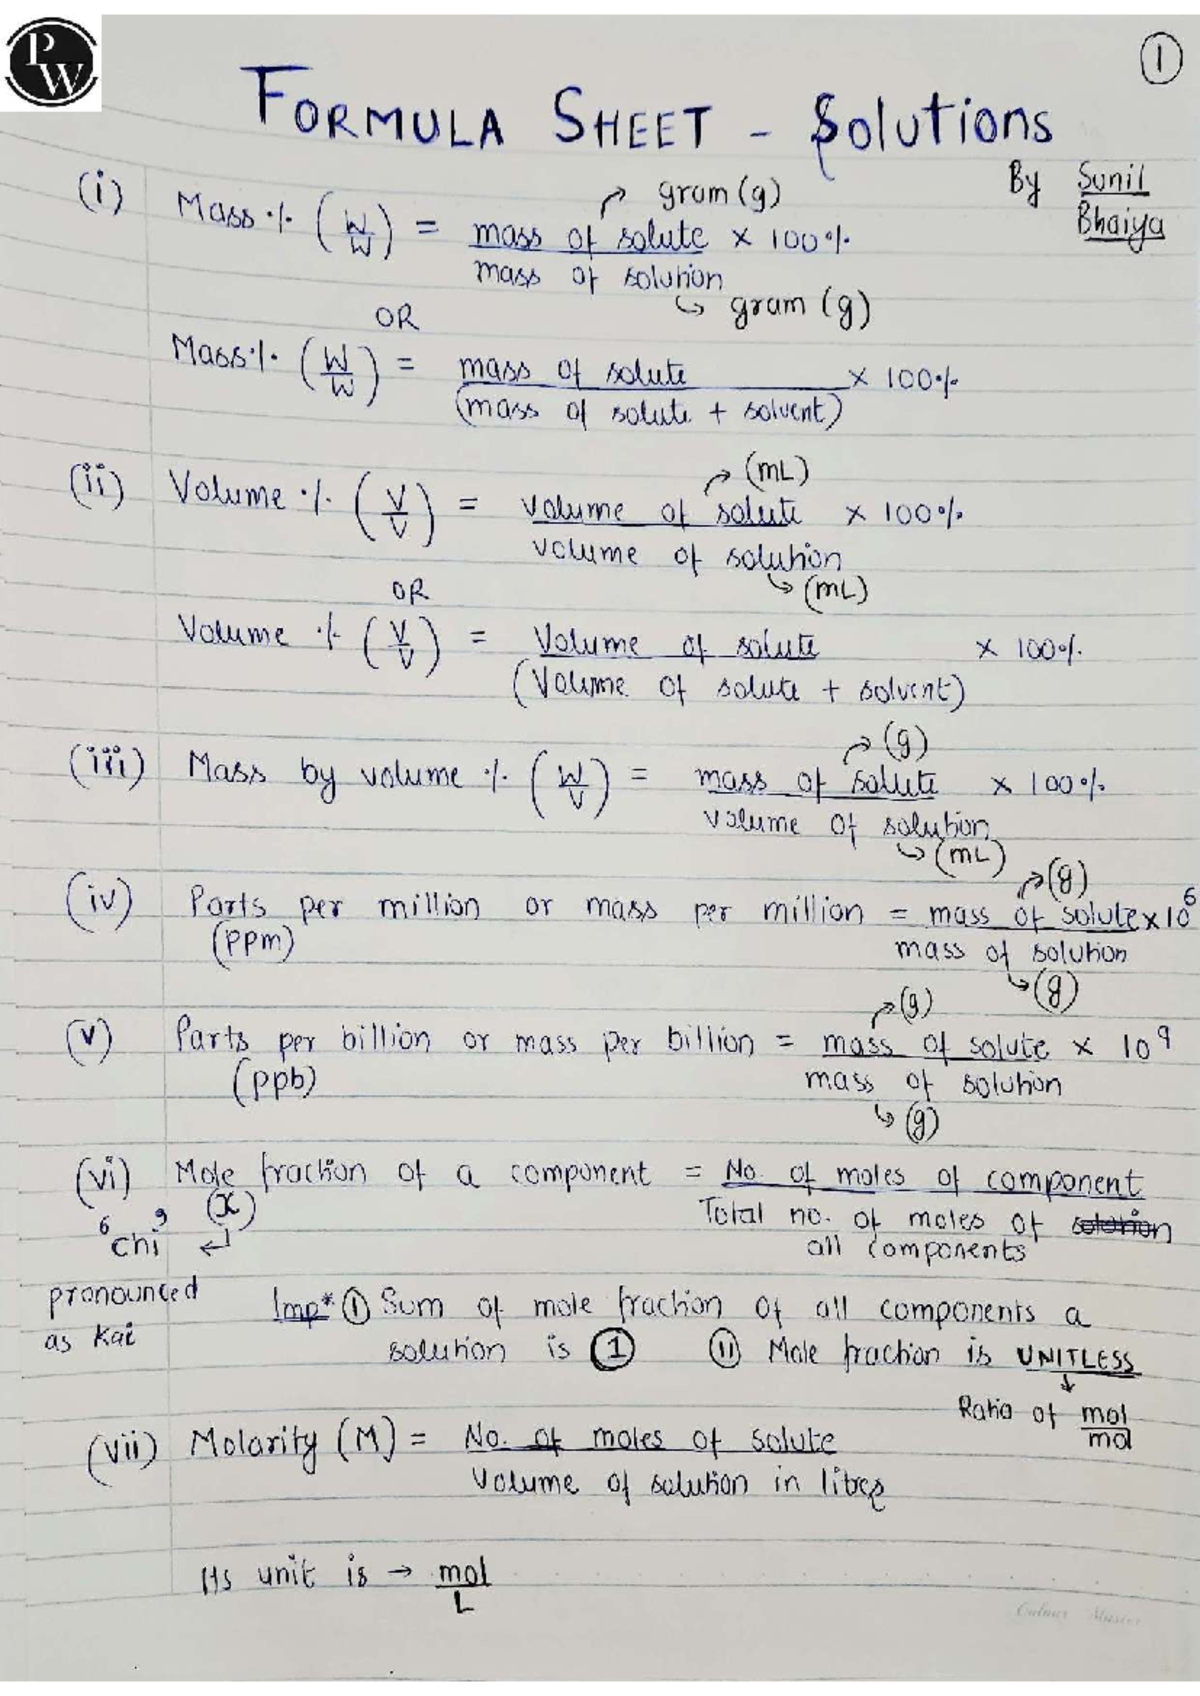 PW
1
FORMULA SHEET - Solutions
By Sunil
Bhaiya
gram (g)
(i) Mass % (W/W) = mass of solute × 100%
mass of solution
gram (g)
OR
Mass % (W/W) = mass of solute × 100%
(mass of solute + solvent)
(mL)
(ii) Volume % (V/V) = volume of solute × 100%
volume of solution
(mL)
OR
Volume % (V/V) = Volume of solute × 100%
(Volume of solute + solvent)
(g)
(iii) Mass by volume % (W/V) = mass of solute × 100%
volume of solution
(mL)
(g)
(iv) Parts per million or mass per million = mass of solute × 10⁶
(ppm) mass of solution
(g)
(g)
(v) Parts per billion or mass per billion = mass of solute × 10⁹
(ppb) mass of solution
(g)
(vi) Mole fraction of a component = No. of moles of component
(x) Total no. of moles of solution
6 9
chi all components
pronounced
as Kai
Imp* (i) Sum of mole fraction of all components a
solution is 1 (ii) Mole fraction is UNITLESS
Ratio of mol/mol
(vii) Molarity (M) = No. of moles of solute
Volume of solution in litres
Its unit is → mol
L
Colour Master